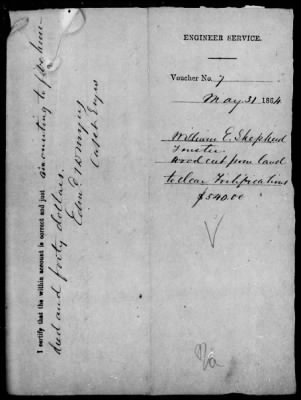 ENGINEER SERVICE.
Voucher No. 7
May 31 1864
William E. Shepherd
Trustee
Wood cut from land
to clear Fortifications
$540.00
I certify that the within account is correct and just amounting to five hun-
dred and forty dollars.
Capt. Engrs